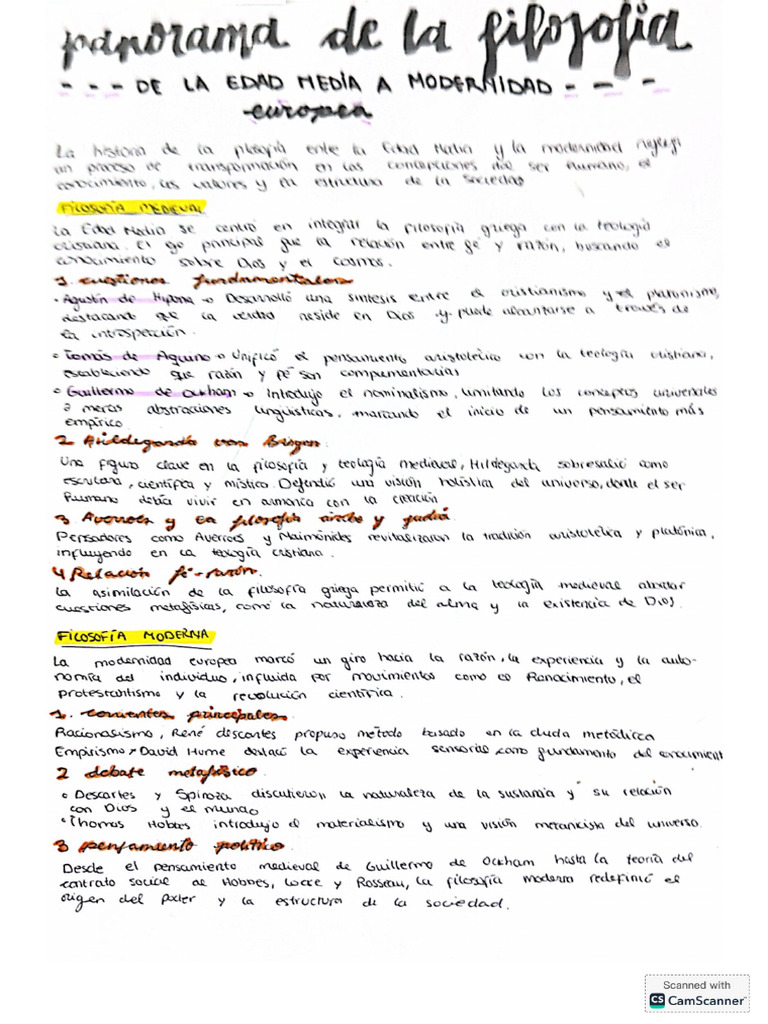 panorama de la filosofia
- - - DE LA EDAD MEDIA A MODERNIDAD - - -
europea
La historia de la filosofía entre la Edad Media y la modernidad refleja
un proceso de transformación en las concepciones del ser humano, el
conocimiento, los valores y la estructura de la sociedad
FILOSOFÍA MEDIEVAL
La Edad Media se centró en integrar la filosofía griega con la teología
cristiana. El eje principal fue la relación entre fé y razón, buscando el
conocimiento sobre Dios y el cosmos.
1. cuestiones fundamentales
• Agustín de Hipona → Desarrolló una síntesis entre el cristianismo y el platonismo,
destacando que la verdad reside en Dios y puede alcantarse a través de
la introspección.
• Tomás de Aquino → Unificó el pensamiento aristotélico con la teología cristiana,
estableciendo que razón y fé son complementarias
• Guillermo de Ockham → Introdujo el nominalismo, limitando los conceptos universales
a meras abstracciones lingüísticas, marcando el inicio de un pensamiento más
empírico.
2 Hildegarda von Bingen.
Una figura clave en la filosofía y teología medieval, Hildegarda sobresalió como
escritora, científica y mística. Defendió una visión holística del universo, donde el ser
humano debía vivir en armonía con la creación
3 Averroes y la filosofía árabe y judía.
Pensadores como Averroes y Maimónides revitalizaron la tradición aristotélica y platónica,
influyendo en la teología cristiana.
4 Relación fé-razón.
La asimilación de la filosofía griega permitió a la teología medieval abordar
cuestiones metafísicas, como la naturaleza del alma y la existencia de Dios.
FILOSOFÍA MODERNA
La modernidad europea marcó un giro hacia la razón, la experiencia y la auto-
nomía del individuo, influida por movimientos como el Renacimiento, el
protestantismo y la revolución científica.
1. corrientes principales
Racionalismo, René descartes propuso método basado en la duda metódica
Empirismo David Hume destacó la experiencia sensorial como fundamento del conocimient
2 debate metafísico.
• Descartes y Spinoza discutieron la naturaleza de la sustancia y su relación
con Dios y el mundo
• Thomas Hobbes introdujo el materialismo y una visión mecanicista del universo.
3 pensamiento político.
Desde el pensamiento medieval de Guillermo de Ockham hasta la teoría del
contrato social de Hobbes, Locke y Rosseau, la filosofía moderna redefinió el
origen del poder y la estructura de la sociedad.
Scanned with
CS CamScanner